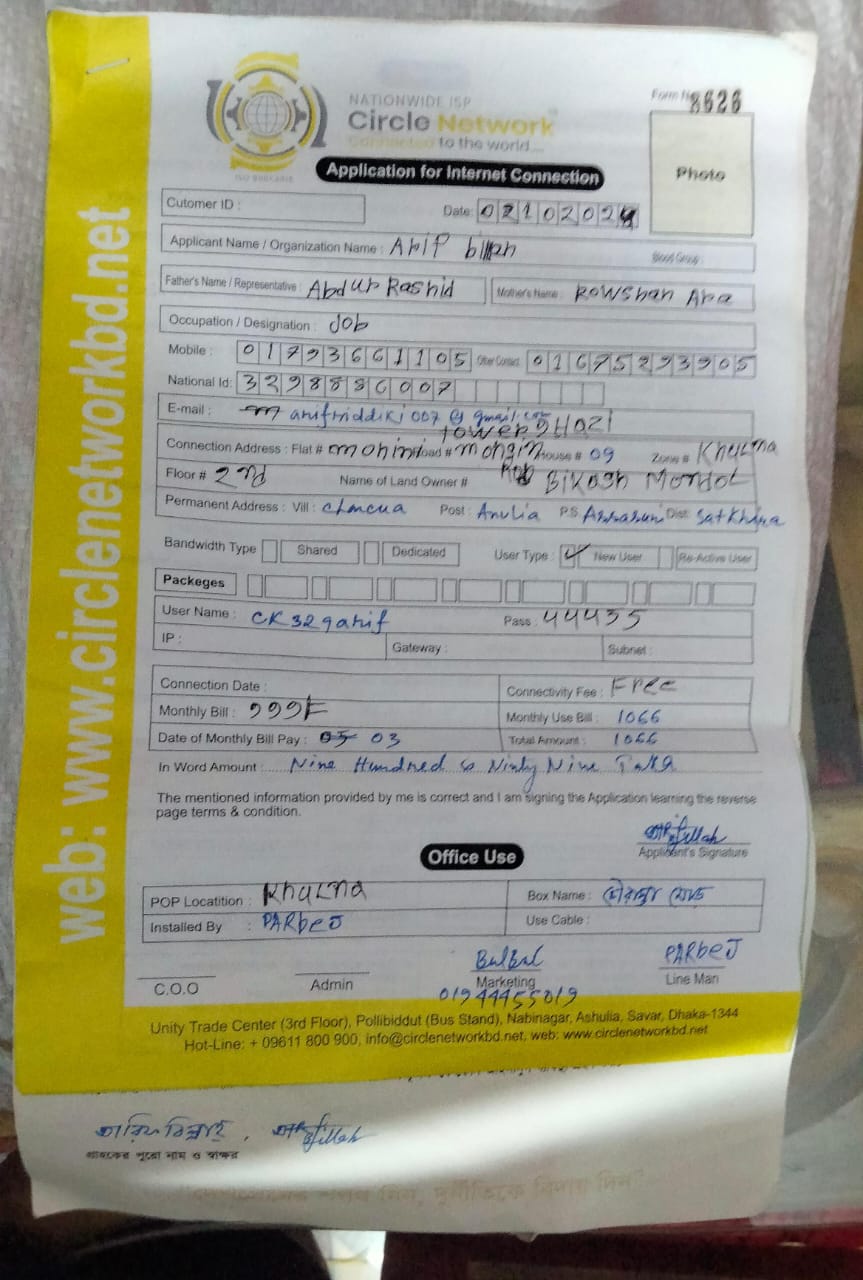 web: www.circlenetworkbd.net
NATIONWIDE ISP
Circle Network
Connected to the world....
ISO 9001:2015
Form No 8626
Photo
Application for Internet Connection
Cutomer ID :
Date: 02102024
Applicant Name / Organization Name : Arif billah Blood Group :
Father's Name / Representative : Abdur Rashid Mother's Name : Rowshan Ara
Occupation / Designation : Job
Mobile : 01793661105 Other Contact 01675293905
National Id: 3298886007
E-mail : @ gmail.com
tower Hazi
Connection Address : Flat # Road # mohsin House # 09 Zone # Khulna
Floor # 2nd Name of Land Owner # Bikash Mondol
Permanent Address : Vill : Post : Anulia P.S Assasuni Dist: Satkhira
Bandwidth Type Shared Dedicated User Type : New User Re-Active User
Packeges
User Name : CK329arif Pass : 44435
IP : Gateway : Subnet :
Connection Date : Connectivity Fee : Free
Monthly Bill : 999 Monthly Use Bill : 1066
Date of Monthly Bill Pay : 05 03 Total Amount : 1066
In Word Amount : Nine Hundred & Ninty Nine Taka
The mentioned information provided by me is correct and I am signing the Application learning the reverse
page terms & condition.
Applicant's Signature
Office Use
POP Locatition : Khulna Box Name :
Installed By : PARbeJ Use Cable :
C.O.O Admin Bulbul Marketing PARbeJ Line Man
01944455019
Unity Trade Center (3rd Floor), Pollibiddut (Bus Stand), Nabinagar, Ashulia, Savar, Dhaka-1344
Hot-Line: + 09611 800 900, info@circlenetworkbd.net, web: www.circlenetworkbd.net
আরিফ বিল্লাহ,
গ্রাহকের পুরো নাম ও স্বাক্ষর